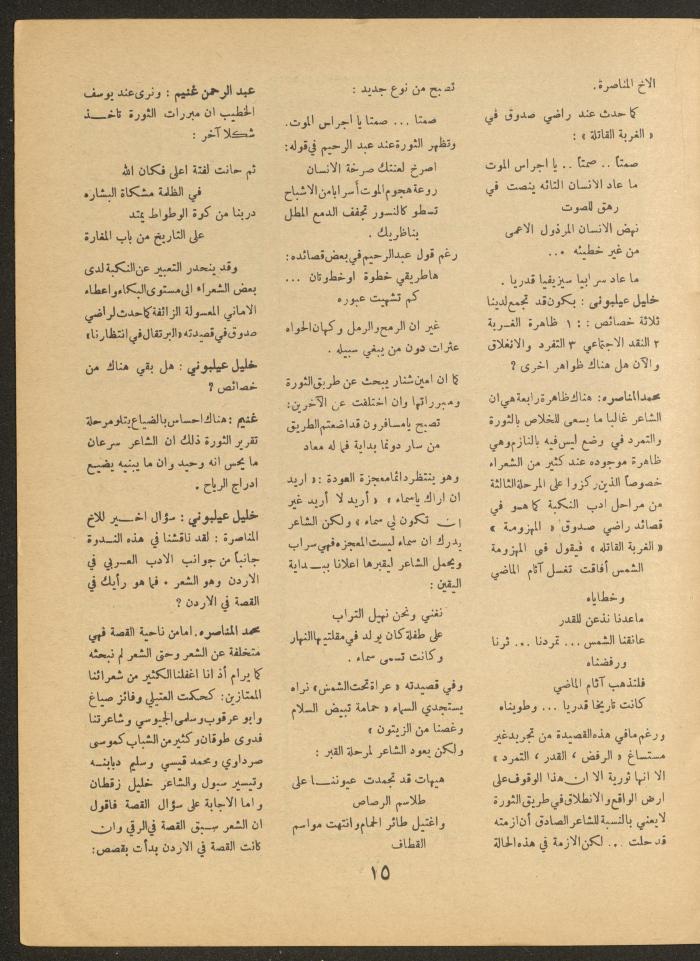 الاخ المناصرة .
كما حدث عند راضي صدوق في
« الغربة القاتلة » :
صمتاً .. صمتاً .. يا اجراس الموت
ما عاد الانسان التائه ينصت في
رهق للصوت
نهض الانسان المرذول الاعمى
من غير خطيئه ...
ما عاد سرابيا سيزيفيا قدريا .
خليل عيلبوني : يكون قد تجمع لدينا
ثلاثة خصائص : ١ ظاهرة الغربة
٢ النقد الاجتماعي ٣ التفرد والانغلاق
والآن هل هناك ظواهر اخرى ؟
محمد المناصره : هناك ظاهرة رابعة هي ان
الشاعر غالبا ما يسعى للخلاص بالثورة
والتمرد في وضع ليس فيه بالنازم وهي
ظاهرة موجوده عند كثير من الشعراء
خصوصاً الذين ركزوا على المرحلة الثالثة
من مراحل ادب النكبة كما هو في
قصائد راضي صدوق « المهزومة »
« الغربة القاتله » فيقول في المهزومة
الشمس أفاقت تغسل آثام الماضي
وخطاياه
ماعدنا نذعن للقدر
عانقنا الشمس ... تمردنا .. ثرنا
ورفضناه
فلتذهب آثام الماضي
كانت تاريخا قدريا ... وطويناه
ورغم مافي هذه القصيدة من تجريد غير
مستساغ « الرفض ، القدر ، التمرد »
الا انها ثورية الا ان هذا الوقوف على
ارض الواقع والانطلاق في طريق الثورة
لا يعني بالنسبة للشاعر الصادق أن ازمته
قد حلت ... لكن الازمة في هذه الحالة
تصبح من نوع جديد :
صمتا ... صمتا يا اجراس الموت.
وتظهر الثورة عند عبد الرحيم في قوله:
اصرخ لعنتك صرخة الانسان
روعة هجوم الموت أسرابا من الاشباح
تسطو كالنسور تجفف الدمع المطل
بناظريك .
رغم قول عبدالرحيم في بعض قصائده:
ها طريقي خطوة او خطوتان ...
كم تشهيت عبوره
غير ان الرمح والرمل وكهان الخواء
عثرات دون من يبغي سبيله .
كما ان امين شنار يبحث عن طريق الثورة
ومبرراتها وان اختلفت عن الآخرين:
تصبح يا مسافرون قد اضعتم الطريق
من سار دونما بداية فما له معاد
وهو ينتظر دائما معجزة العودة : « اريد
ان اراك ياسماء » « أريد لا أريد غير
ان تكون لي سماء » ولكن الشاعر
يدرك ان سماء ليست المعجزه فهي سراب
ويحمل الشاعر ليقبرها اعلانا ببداية
اليقين :
نغني ونحن نهيل التراب
على طفلة كان يولد في مقلتيها النهار
وكانت تسمى سماء .
وفي قصيدته « عراة تحت الشمس » نراه
يستجدي السماء « حمامة تبيض السلام
وغصنا من الزيتون »
ولكن يعود الشاعر لمرحلة القبر :
هيهات قد تجمدت عيوننا على
طلاسم الرصاص
واغتيل طائر الحمام وانتهت مواسم
القطاف
عبد الرحمن غنيم : ونرى عند يوسف
الخطيب ان مبررات الثورة تاخذ
شكلا آخر :
ثم حانت لفتة اعلى فكان الله
في الظلمة مشكاة البشاره
دربنا من كوة الوطواط يمتد
على التاريخ من باب المغارة
وقد ينحدر التعبير عن النكبة لدى
بعض الشعراء الى مستوى البكاء واعطاء
الاماني المعسولة الزائفة كما حدث لراضي
صدوق في قصيدته « البرتقال في انتظارنا »
خليل عيلبوني : هل بقي هناك من
خصائص ؟
غنيم : هناك احساس بالضياع يتلو مرحلة
تقرير الثورة ذلك ان الشاعر سرعان
ما يحس انه وحيد وان ما يبنيه يضيع
ادراج الرياح .
خليل عيلبوني : سؤال اخير للاخ
المناصرة : لقد ناقشنا في هذه الندوة
جانباً من جوانب الادب العربي في
الاردن وهو الشعر . فما هو رأيك في
القصة في الاردن ؟
محمد المناصره . اما من ناحية القصة فهي
متخلفة عن الشعر وحتى الشعر لم نبحثه
كما يرام أذ انا اغفلنا الكثير من شعرائنا
الممتازين: كحكمت العتيلي وفائز صياغ
وابو عرقوب وسلمى الجيوسي وشاعرتنا
فدوى طوقان وكثير من الشباب كموسى
صرداوي ومحمد قيسي وسليم دبابنه
وتيسير سبول والشاعر خليل زقطان
واما الاجابة على سؤال القصة فاقول
ان الشعر سبق القصة في الرقي وان
كانت القصة في الاردن بدأت بقصص:
١٥